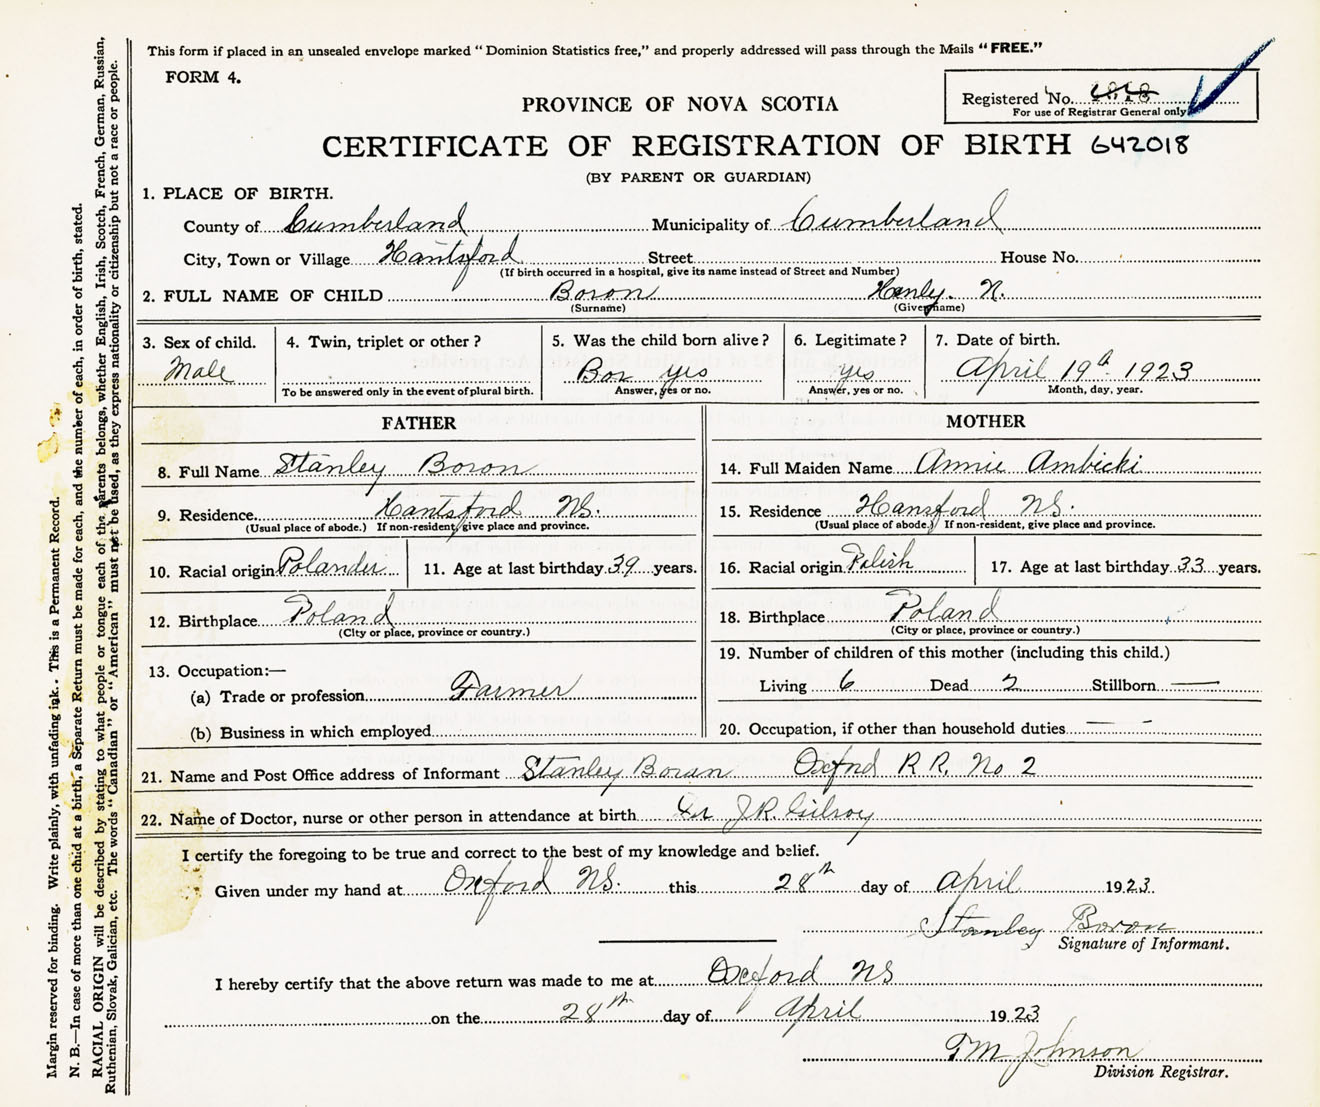 This form if placed in an unsealed envelope marked “Dominion Statistics free,” and properly addressed will pass through the Mails “FREE.”
FORM 4.
Registered No.
For use of Registrar General only
PROVINCE OF NOVA SCOTIA
CERTIFICATE OF REGISTRATION OF BIRTH 642018
(BY PARENT OR GUARDIAN)
1. PLACE OF BIRTH.
County of Cumberland Municipality of Cumberland
City, Town or Village Hantsford Street House No.
(If birth occurred in a hospital, give its name instead of Street and Number)
2. FULL NAME OF CHILD Boron Henly. N.
(Surname) (Given name)
3. Sex of child. 4. Twin, triplet or other? 5. Was the child born alive? 6. Legitimate? 7. Date of birth.
Male Bor yes yes April 19th 1923
To be answered only in the event of plural birth. Answer, yes or no. Answer, yes or no. Month, day, year.
FATHER
8. Full Name Stanley Boron
9. Residence. Hantsford NS.
(Usual place of abode.) If non-resident, give place and province.
10. Racial origin Polander 11. Age at last birthday 39 years.
12. Birthplace Poland
(City or place, province or country.)
13. Occupation:—
(a) Trade or profession Farmer
(b) Business in which employed
MOTHER
14. Full Maiden Name Annie Ambicki
15. Residence Hansford NS.
(Usual place of abode.) If non-resident, give place and province.
16. Racial origin Polish 17. Age at last birthday 33 years.
18. Birthplace Poland
(City or place, province or country.)
19. Number of children of this mother (including this child.)
Living 6 Dead 2 Stillborn —
20. Occupation, if other than household duties —
21. Name and Post Office address of Informant Stanley Boran Oxford R R. No 2
22. Name of Doctor, nurse or other person in attendance at birth Dr J.R. Gilroy
I certify the foregoing to be true and correct to the best of my knowledge and belief.
Given under my hand at Oxford NS. this 28th day of April 1923.
Stanley Boron
Signature of Informant.
I hereby certify that the above return was made to me at Oxford NS
on the 28th day of April 1923
T M Johnson
Division Registrar.
Margin reserved for binding. Write plainly, with unfading ink. This is a Permanent Record.
N. B.—In case of more than one child at a birth, a Separate Return must be made for each, and the number of each, in order of birth, stated.
RACIAL ORIGIN will be described by stating to what people or tongue each of the parents belongs, whether English, Irish, Scotch, French, German, Russian,
Ruthenian, Slovak, Galician, etc. The words “Canadian” or “American” must not be used, as they express nationality or citizenship but not a race or people.